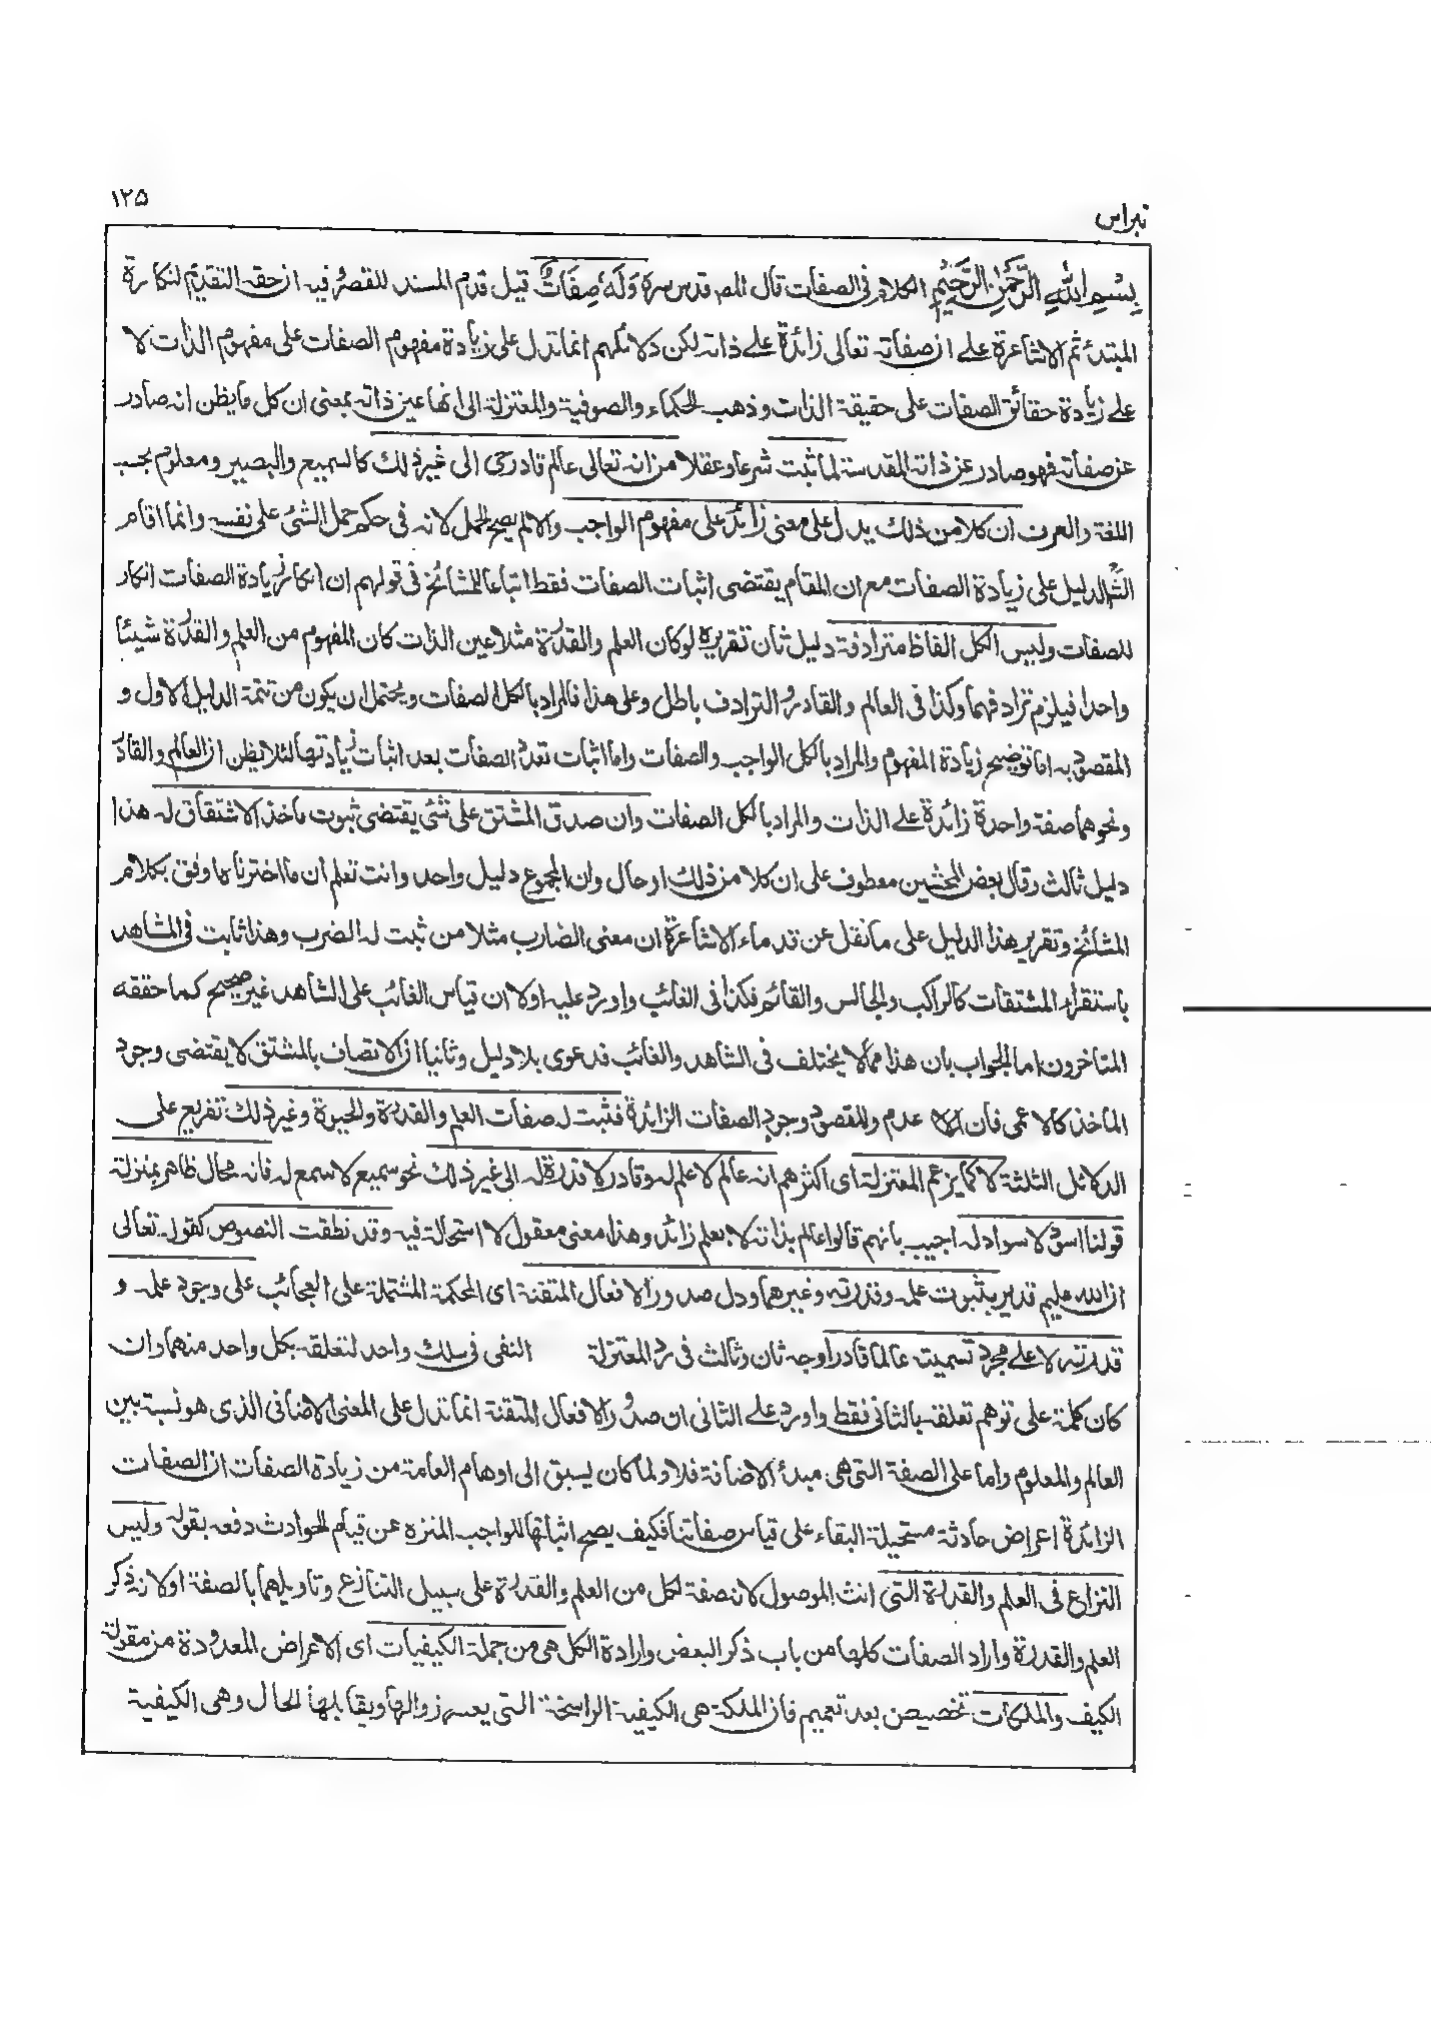 ۱۲۵
نبراس
بسم الله الرحمن الرحيم الكلام فى الصفات قال المص قدس سره وَلَهٗ صِفَاتٌ قيل قدم المسند للقصر فيه ان حقه التقديم لنكارة
المبتدء ثم الاشاعرة على ان صفاته تعالى زائدة على ذاته لكن دلائلهم انما تدل على زيادة مفهوم الصفات على مفهوم الذات لا
على زيادة حقائق الصفات على حقيقة الذات وذهب الحكماء والصوفية والمعتزلة الى انها عين ذاته بمعنى ان كل ما يظن انه صادر
عن صفاته فهو صادر عن ذاته المقدسة لما ثبت شرعا وعقلا من انه تعالى عالم قادر حى الى غير ذلك كالسميع والبصير ومعلوم بحسب
اللغة والعرف ان كلا من ذلك يدل على معنى زائد على مفهوم الواجب والا لم يصح الحمل لانه فى حكم حمل الشئ على نفسه وانما اقام
الش الدليل على زيادة الصفات مع ان المقام يقتضى اثبات الصفات فقط اتباعا للمشائخ فى قولهم ان انكار زيادة الصفات انكار
للصفات وليس الكل الفاظ مترادفة دليل ثان تقريره لو كان العلم والقدرة مثلا عين الذات كان المفهوم من العلم والقدرة شيئا
واحدا فيلزم ترادفهما وكذا فى العالم والقادر والترادف باطل وعلى هذا فالمراد بالكل الصفات ويحتمل ان يكون من تتمة الدليل الاول و
المقصود به اما توضيح زيادة المفهوم والمراد بالكل الواجب والصفات واما اثبات تعدد الصفات بعد اثبات زيادتها لئلا يظن ان العالم والقادر
ونحوهما صفة واحدة زائدة على الذات والمراد بالكل الصفات وان صدق المشتق على شئ يقتضى ثبوت ماخذ الاشتقاق له هذا
دليل ثالث وقال بعض المحشين معطوف على ان كلا من ذلك او حال وان المجموع دليل واحد وانت تعلم ان ما اخترناه اوفق بكلام
المشائخ وتقرير هذا الدليل على ما نقل عن قدماء الاشاعرة ان معنى الضارب مثلا من ثبت له الضرب وهذا ثابت فى المشاهد
باستقراء المشتقات كالراكب والجالس والقائم فكذا فى الغائب واورد عليه اولا ان قياس الغائب على الشاهد غير صحيح كما حققه
المتاخرون اما الجواب بان هذا مما لا يختلف فى الشاهد والغائب فدعوى بلا دليل وثانيا ان الاتصاف بالمشتق لا يقتضى وجود
الماخذ كالاعمى فان عدم والمقصود وجود الصفات الزائدة فثبت له صفات العلم والقدرة والحيوة وغير ذلك تفريع على
الدلائل الثلثة لا كما يزعم المعتزلة اى اكثرهم انه عالم لا علم له وقادر لا قدرة له الى غير ذلك نحو سميع لا سمع له فانه محال ظاهر بمنزلة
قولنا اسود لا سواد له اجيب بانهم قالوا عالم بذاته لا بعلم زائد وهذا معنى معقول لا استحالة فيه وقد نطقت النصوص كقوله تعالى
ان الله عليم قدير بثبوت علمه وقدرته وغيرهما ودل صدور الافعال المتقنة اى المحكمة المشتملة على العجائب على وجود علمه و
قدرته لا على مجرد تسميته عالما قادرا وجه ثان وثالث فى رد المعتزلة النفى فى سلك واحد لتعلقه بكل واحد منهما وان
كان كلمة على توهم تعلقه بالثانى فقط واورد على الثانى ان صدور الافعال المتقنة انما تدل على المعنى الاضافى الذى هو نسبة بين
العالم والمعلوم واما على الصفة التى هى مبدأ الاضافة فلا ولما كان يسبق الى اوهام العامة من زيادة الصفات ان الصفات
الزائدة اعراض حادثة مستحيلة البقاء على قياس صفاتنا فكيف يصح اثباتها للواجب المنزه عن قيام الحوادث دفعه بقوله وليس
النزاع فى العلم والقدرة التى انث الموصول لانه صفة لكل من العلم والقدرة على سبيل التنازع وتاويلهما بالصفة او لانه ذكر
العلم والقدرة واراد الصفات كلها من باب ذكر البعض وارادة الكل هى من جملة الكيفيات اى الاعراض المعدودة من مقولة
الكيف والملكات تخصيص بعد تعميم فان الملكة هى الكيفية الراسخة التى يعسر زوالها ويقابلها الحال وهى الكيفية